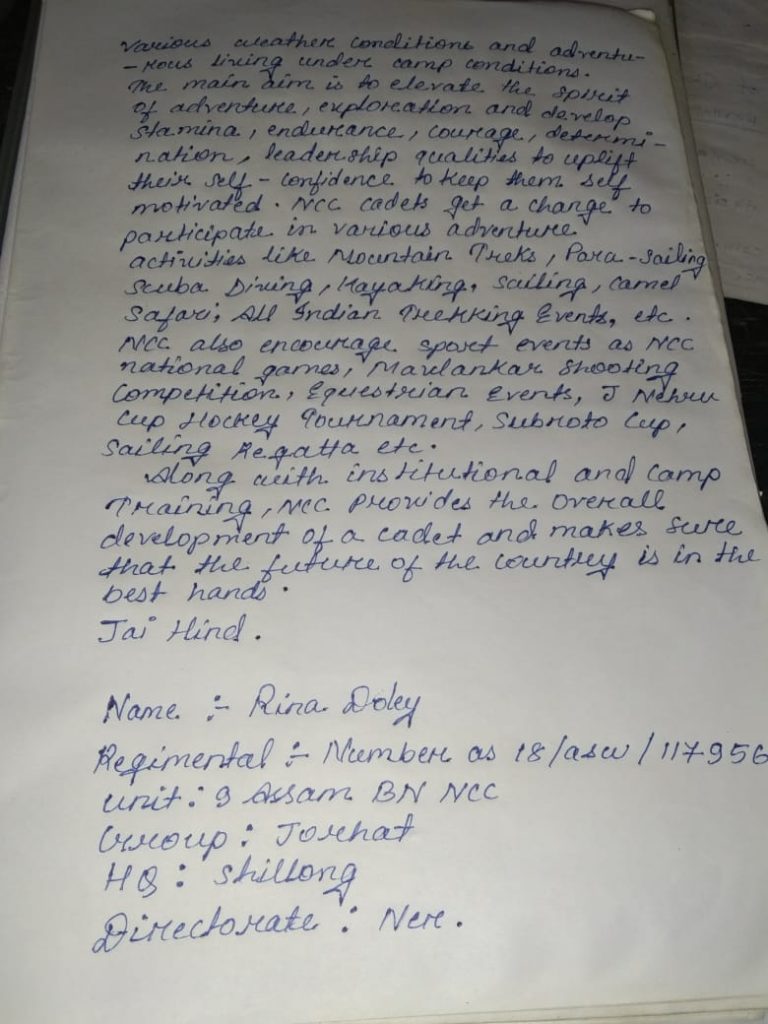 various weather conditions and adventu-
-rous living under camp conditions.
The main aim is to elevate the spirit
of adventure, exploration and develop
stamina, endurance, courage, determi-
nation, leadership qualities to uplift
their self-confidence to keep them self
motivated. NCC cadets get a change to
participate in various adventure
activities like Mountain Treks, Para-Sailing
Scuba Diving, Kayaking, sailing, camel
Safari, All Indian Trekking Events, etc.
NCC also encourage sport events as NCC
national games, Mavlankar Shooting
Competition, Equestrian Events, J Nehru
Cup Hockey Tournament, Subroto Cup,
Sailing Regatta etc.
Along with institutional and camp
Training, NCC provides the overall
development of a cadet and makes sure
that the future of the country is in the
best hands.
Jai Hind.
Name :- Rina Doley
Regimental :- Number as 18/asw/117956
unit: 9 Assam BN NCC
Group: Jorhat
HQ: Shillong
Directorate: Ner.